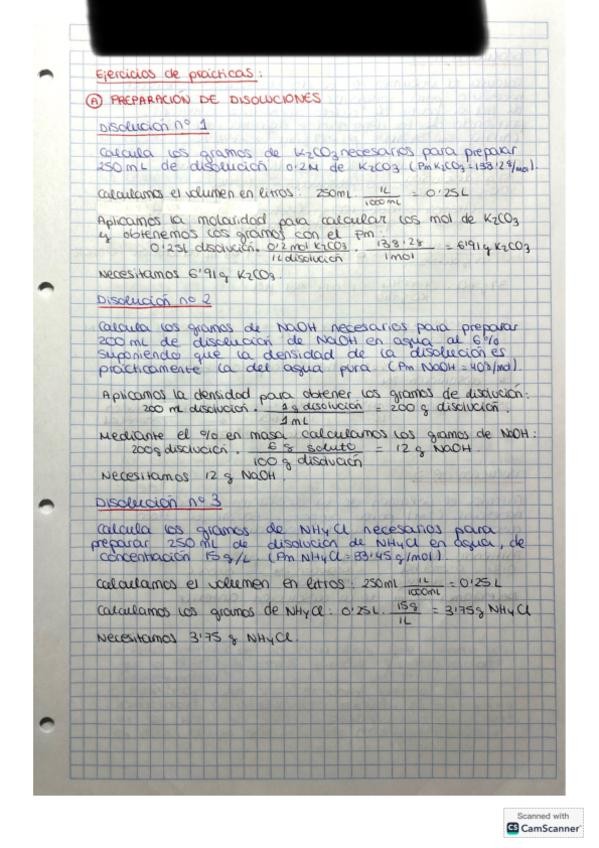 Ejercicios de prácticas:
Ⓐ PREPARACIÓN DE DISOLUCIONES
Disolución nº 1
Calcula los gramos de K₂CO₃ necesarios para preparar
250 mL de disolución 0'2M de K₂CO₃ (Pm K₂CO₃=138'2g/mol).
Calculamos el volumen en litros: 250mL · 1L/1000mL = 0'25L
Aplicamos la molaridad para calcular los mol de K₂CO₃
y obtenemos los gramos con el Pm:
0'25L disolución · 0'2 mol K₂CO₃/1L disolución · 138'2g/1mol = 6'91g K₂CO₃
Necesitamos 6'91g K₂CO₃.
Disolución nº 2
Calcula los gramos de NaOH necesarios para preparar
200 mL de disolución de NaOH en agua al 6%
suponiendo que la densidad de la disolución es
prácticamente la del agua pura. (Pm NaOH = 40g/mol).
Aplicamos la densidad para obtener los gramos de disolución:
200 mL disolución · 1g disolución/1mL = 200 g disolución.
Mediante el % en masa calculamos los gramos de NaOH:
200g disolución · 6 g soluto/100 g disolución = 12 g NaOH.
Necesitamos 12 g NaOH.
Disolución nº 3
Calcula los gramos de NH₄Cl necesarios para
preparar 250 mL de disolución de NH₄Cl en agua, de
concentración 15g/L (Pm NH₄Cl=53'45g/mol).
Calculamos el volumen en litros: 250ml · 1L/1000mL = 0'25L
Calculamos los gramos de NH₄Cl: 0'25L · 15g/1L = 3'75g NH₄Cl
Necesitamos 3'75 g NH₄Cl.
Scanned with
CS CamScanner